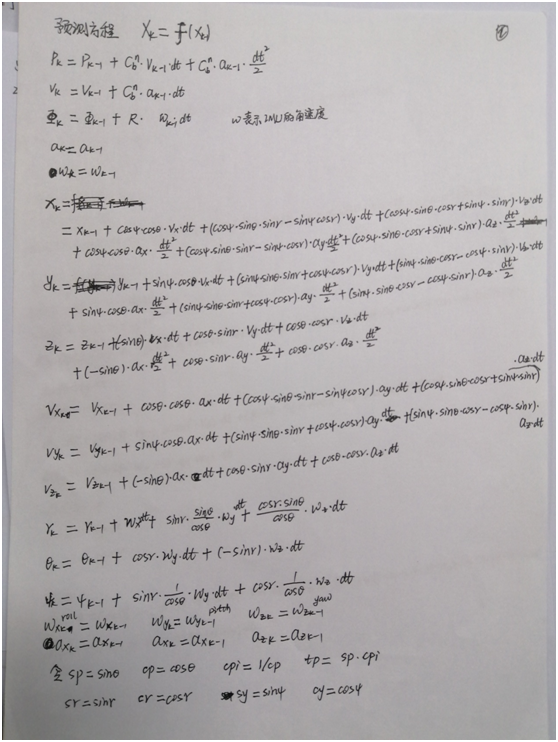 预测方程 Xₖ = f(Xₖ) ①
Pₖ = Pₖ₋₁ + C_bⁿ·Vₖ₋₁·dt + C_bⁿ·aₖ₋₁·dt²/2
Vₖ = Vₖ₋₁ + C_bⁿ·aₖ₋₁·dt
Φₖ = Φₖ₋₁ + R· wₖ₋₁·dt w表示IMU的角速度
aₖ = aₖ₋₁
wₖ = wₖ₋₁
Xₖ =
= xₖ₋₁ + cosψ·cosθ·Vx·dt + (cosψ·sinθ·sinr − sinψ·cosr)·Vy·dt + (cosψ·sinθ·cosr + sinψ·sinr)·Vz·dt
+ cosψ·cosθ·ax·dt²/2 + (cosψ·sinθ·sinr − sinψ·cosr)·ay·dt²/2 + (cosψ·sinθ·cosr + sinψ·sinr)·az·dt²/2
yₖ = yₖ₋₁ + sinψ·cosθ·Vx·dt + (sinψ·sinθ·sinr + cosψ·cosr)·Vy·dt + (sinψ·sinθ·cosr − cosψ·sinr)·Vz·dt
+ sinψ·cosθ·ax·dt²/2 + (sinψ·sinθ·sinr + cosψ·cosr)·ay·dt²/2 + (sinψ·sinθ·cosr − cosψ·sinr)·az·dt²/2
zₖ = zₖ₋₁ + (sinθ)·Vx·dt + cosθ·sinr·Vy·dt + cosθ·cosr·Vz·dt
+ (−sinθ)·ax·dt²/2 + cosθ·sinr·ay·dt²/2 + cosθ·cosr·az·dt²/2
Vxₖ = Vxₖ₋₁ + cosθ·cosθ·ax·dt + (cosψ·sinθ·sinr − sinψcosr)·ay·dt + (cosψ·sinθ·cosr + sinψ·sinr)·az·dt
Vyₖ = Vyₖ₋₁ + sinψ·cosθ·ax·dt + (sinψ·sinθ·sinr + cosψ·cosr)·ay·dt + (sinψ·sinθ·cosr − cosψ·sinr)·az·dt
Vzₖ = Vzₖ₋₁ + (−sinθ)·ax·dt + cosθ·sinr·ay·dt + cosθ·cosr·az·dt
rₖ = rₖ₋₁ + wx·dt + sinr·sinθ/cosθ·wy·dt + cosr·sinθ/cosθ·wz·dt
θₖ = θₖ₋₁ + cosr·wy·dt + (−sinr)·wz·dt
ψₖ = ψₖ₋₁ + sinr·1/cosθ·wy·dt + cosr·1/cosθ·wz·dt
wxₖ roll = wxₖ₋₁ wyₖ = wyₖ₋₁ pitch wzₖ = wzₖ₋₁ yaw
axₖ = axₖ₋₁ axₖ = axₖ₋₁ azₖ = azₖ₋₁
令 sp = sinθ cp = cosθ cpi = 1/cp tp = sp·cpi
sr = sinr cr = cosr sy = sinψ cy = cosψ